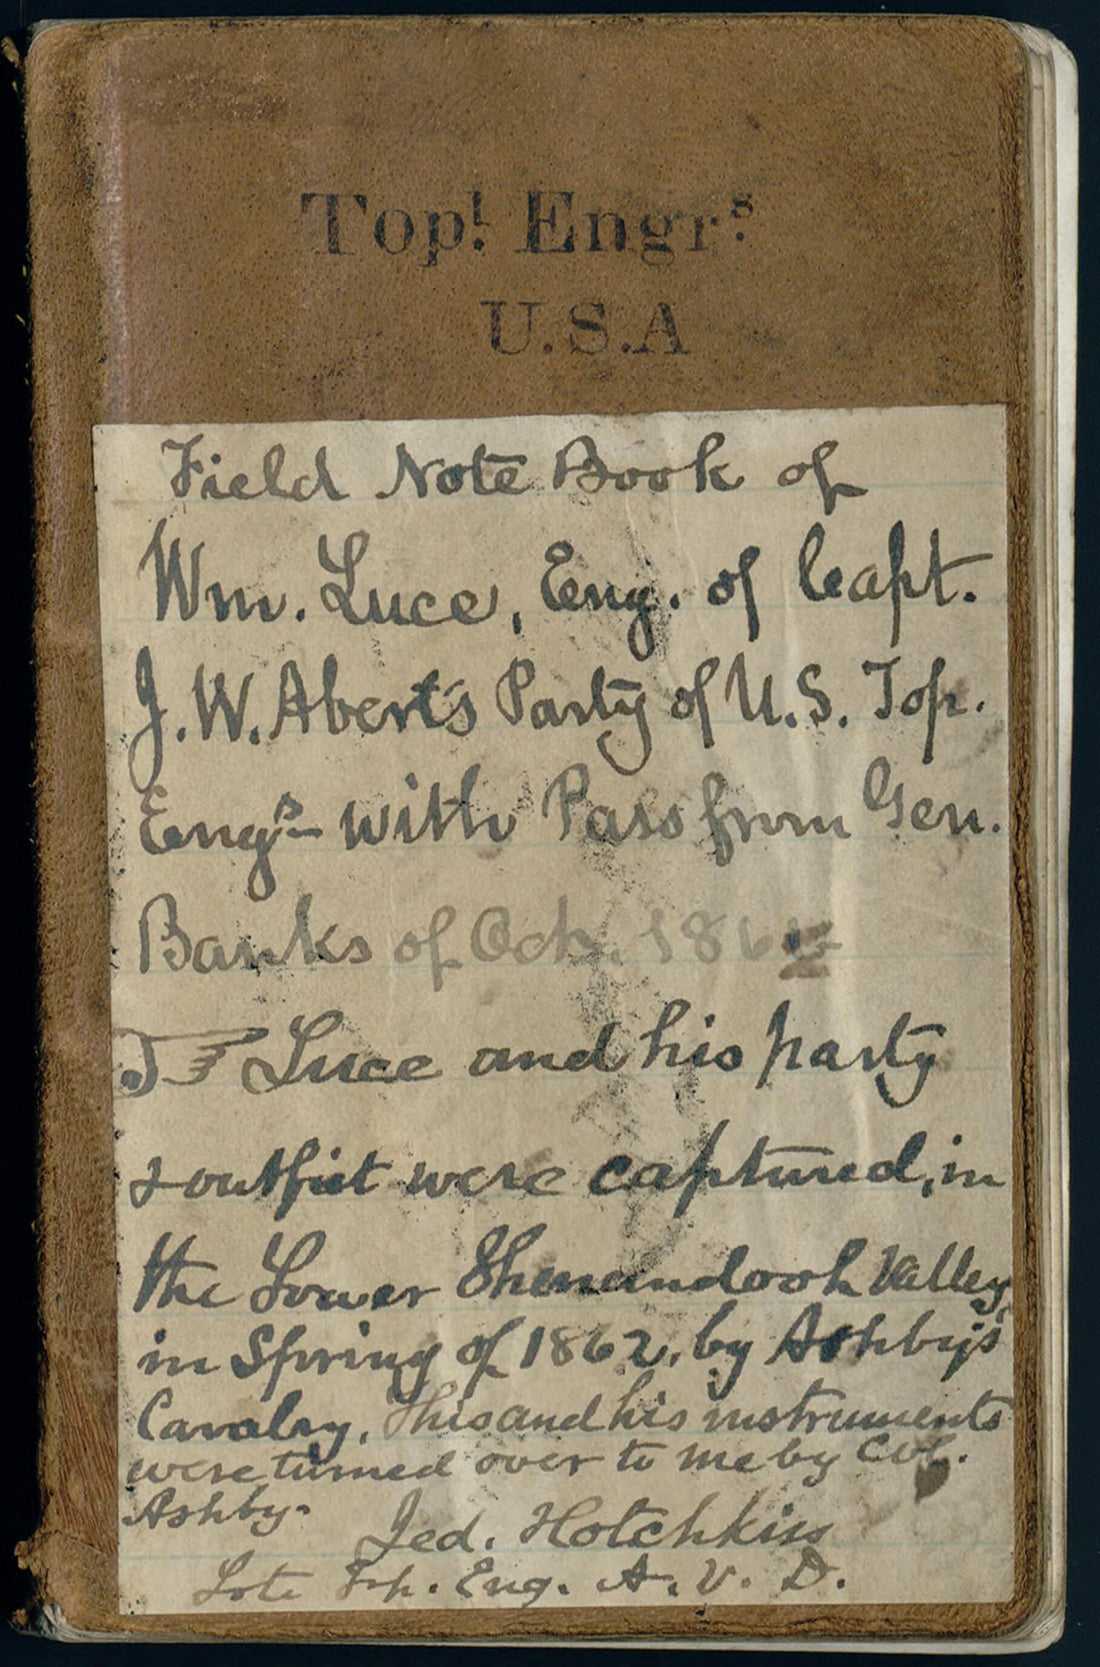 Topl. Engrs.
U.S.A
Field Note Book of
Wm. Luce, Eng. of Capt.
J. W. Abert's Party of U. S. Top.
Engrs – with Pass from Gen.
Banks of Oct. 186
☞ Luce and his party
& outfit were captured, in
the Lower Shenandoah Valley,
in Spring of 1862, by Ashby's
Cavalry. This and his instruments
were turned over to me by Col.
Ashby.
Jed. Hotchkiss
Late Top. Eng. A. V. D.